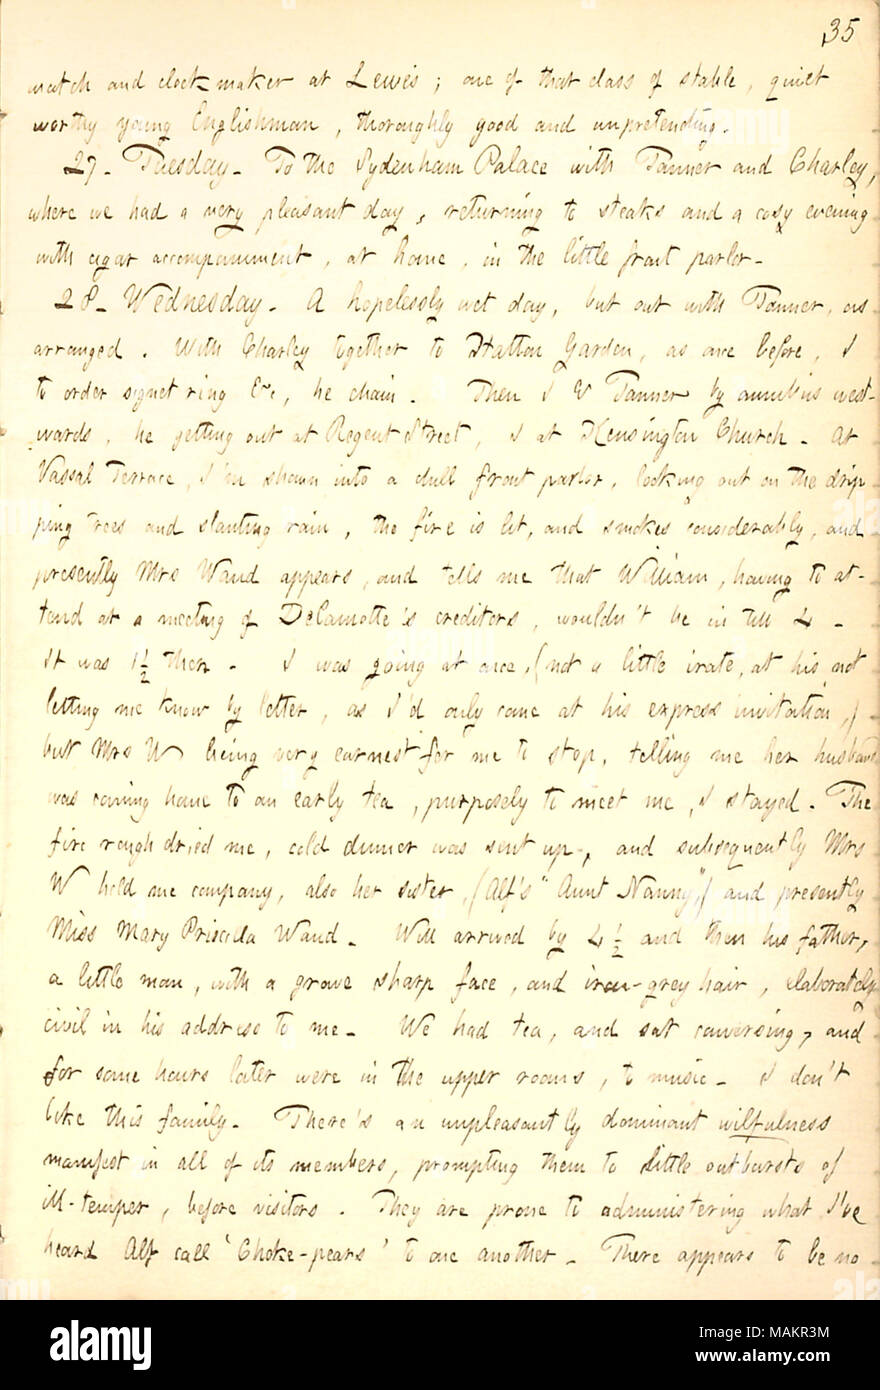 35
watch and clock maker at Lewis; one of that class of stable, quiet
worthy young Englishman, thoroughly good and unpretending.
27. Tuesday. To the Sydenham Palace with Tanner and Charley,
where we had a very pleasant day, returning to steaks and a cosy evening
with cigar accompaniment, at home, in the little front parlor.
28. Wednesday. A hopelessly wet day, but out with Tanner, as
arranged. With Charley together to Hatton Garden, as once before, I
to order signet ring &c, he chain. Then I & Tanner by omnibus west-
wards, he getting out at Regent Street, I at Kensington Church. At
Vassal Terrace, I'm shown into a dull front parlor, looking out on the drip-
ping trees and slanting rain, the fire is lit, and smokes considerably, and
presently Mrs Wand appears, and tells me that William, having to at-
tend at a meeting of Delamotte's creditors, wouldn't be in till 4 -
It was 1½ then. I was going at once, (not a little irate, at his not
letting me know by letter, as I'd only come at his express invitation,)
but Mrs W being very earnest for me to stop, telling me her husband
was coming home to an early tea, purposely to meet me, I stayed. The
fire rough dried me, cold dinner was sent up, and subsequently Mrs
W held me company, also her sister, (Alf's "Aunt Nanny",) and presently
Miss Mary Priscilla Wand. Will arrived by 4½ and then his father,
a little man, with a grave sharp face, and iron-grey hair, elaborately
civil in his address to me. We had tea, and sat conversing, and
for some hours later were in the upper rooms, to music. I don't
like this family. There's an unpleasantly dominant wilfulness
manifest in all of its members, prompting them to little outbursts of
ill-temper, before visitors. They are prone to administering what I've
heard Alf call 'Choke-pears' to one another. There appears to be no
alamy
Image ID: MAKR3M
www.alamy.com